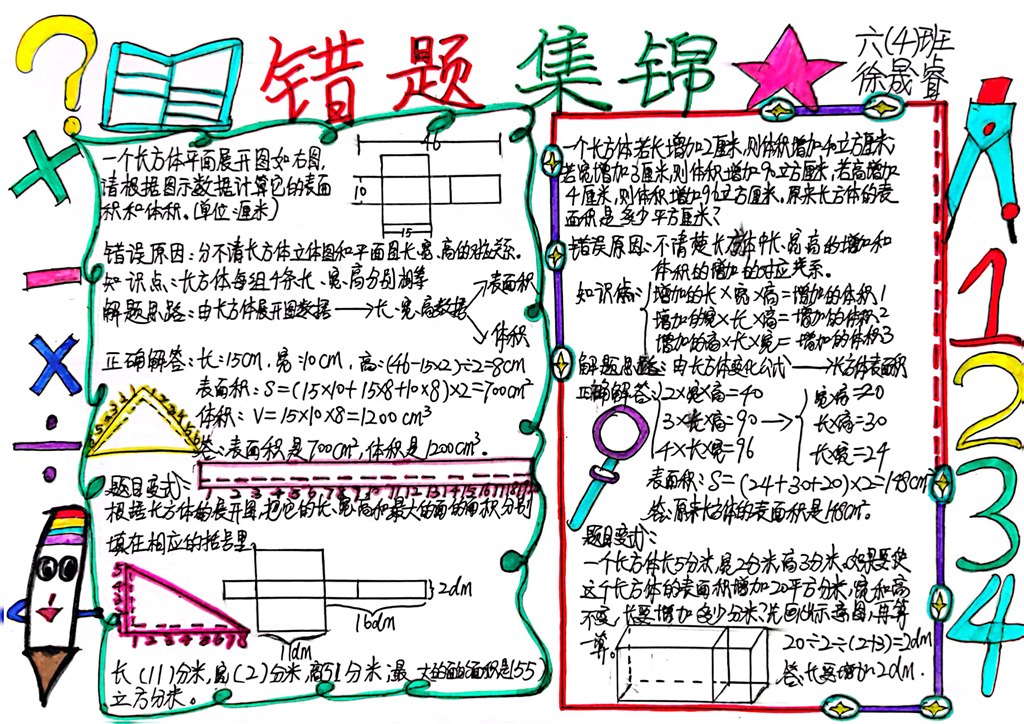 错题集锦
六(4)班
徐晟睿
一个长方体平面展开图如右图,
请根据图示数据计算它的表面
积和体积。(单位:厘米)
46
10
15
错误原因:分不清长方体立体图和平面图长、宽、高的对应关系。
知识点:长方体每组4条长、宽、高分别相等
解题思路:由长方体展开图数据→长、宽、高数据
表面积
体积
正确解答:长:15cm,宽:10cm,高:(46-15×2)÷2=8cm
表面积:S=(15×10+15×8+10×8)×2=700cm²
体积:V=15×10×8=1200cm³
答:表面积是700cm²,体积是1200cm³。
题目变式:
根据长方体的展开图,把它的长、宽、高和最大的面的面积分别
填在相应的括号里
2dm
16dm
11dm
长(11)分米,宽(2)分米,高(5)分米,最大的面的面积是(55)
立方分米。
一个长方体若长增加2厘米,则体积增加40立方厘米;
若宽增加3厘米,则体积增加90立方厘米,若高增加
4厘米,则体积增加96立方厘米。原来长方体的表
面积是多少平方厘米?
错误原因:不清楚长方体中长、宽、高的增加和
体积的增加的对应关系。
知识点:增加的长×宽×高=增加的体积1
增加的宽×长×高=增加的体积2
增加的高×长×宽=增加的体积3
解题思路:由长方体变化公式→长方体表面积
正确解答:2×宽×高=40 宽×高=20
3×长×高=90→长×高=30
4×长×宽=96 长×宽=24
表面积:S=(24+30+20)×2=148cm²
答:原来长方体的表面积是148cm²。
题目变式:
一个长方体长5分米,宽2分米,高3分米。如果要使
这个长方体的表面积增加20平方分米,宽和高
不变,长要增加多少分米?先画出示意图,再算
一算。
20÷2÷(2+3)=2dm
答:长要增加2dm.
1
2
3
4